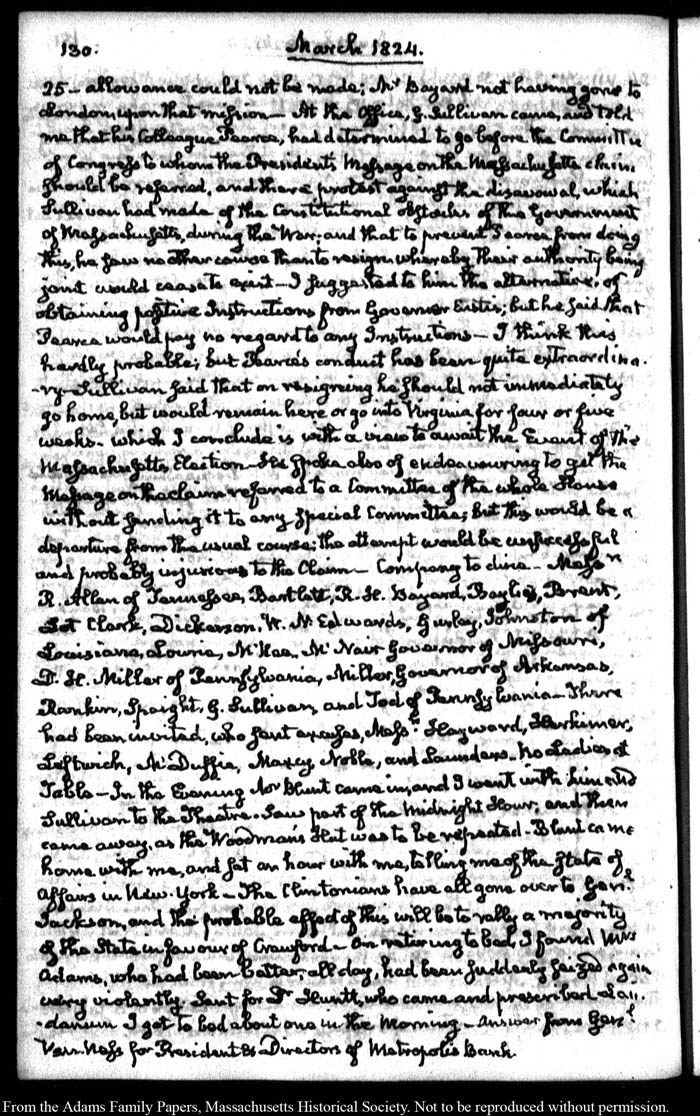 130.
March 1824.
25 – allowance could not be made; Mr Bayard not having gone to
London, upon that mission — At the Office, G. Sullivan came, and told
me that his Colleague Pearce, had determined to go before the Committee
of Congress to whom the Presidents Message on the Massachusetts claim
should be referred, and there protest against the disavowal, which
Sullivan had made of the Constitutional obstacles of the Government
of Massachusetts, during the War; and that to prevent Pearce from doing
this, he saw no other course than to resign whereby their authority being
joint would cease to exist — I suggested to him the alternative, of
obtaining positive Instructions from Governor Eustis; but he said that
Pearce would pay no regard to any Instructions — I think this
hardly probable; but Pearce's conduct has been quite extraordina-
-ry. Sullivan said that on resigning he should not immediately
go home, but would remain here or go into Virginia for four or five
weeks. which I conclude is with a view to await the Event of the
Massachusetts Election — He spoke also of endeavouring to get the
Message on the claim referred to a Committee of the whole House
without sending it to any special Committee; but this would be a
departure from the usual course: the attempt would be unsuccessful
and probably injurious to the Claim — Company to dine — Messrs
R. Allen of Tennessee, Bartlett, R. H. Bayard, Baylies, Brent,
Lot Clark, Dickerson, W. N Edwards, Gurley, Johnston of
Louisiana, Lowrie, McKee, McNair Governor of Missouri,
D. H. Miller of Pennsylvania, Miller, Governor of Arkansas,
Rankin, Spaight, G. Sullivan, and Tod of Pennsylvania — There
had been invited, who sent excuses, Messrs Hayward, Herkimer,
Leftwich, McDuffie, Marcy, Noble, and Saunders. No Ladies at
Table — In the Evening Mr Blunt came in, and I went with him and
Sullivan to the Theatre. Saw part of the Midnight Hour; and then
came away, as the Woodman's Hut was to be repeated. Blunt came
home with me, and sat an hour with me, telling me of the State of
affairs in New-York — The Clintonians have all gone over to Genl
Jackson, and the probable effect of this will be to rally a majority
of the State in favour of Crawford — On retiring to bed, I found Mrs
Adams, who had been better, all day, had been suddenly seized again
very violently. Sent for Dr Huntt, who came and prescribed Lau-
-danum I got to bed about one in the Morning — Answer from Genl
Van-Ness for President & Directors of Metropolis Bank.
From the Adams Family Papers, Massachusetts Historical Society. Not to be reproduced without permission.